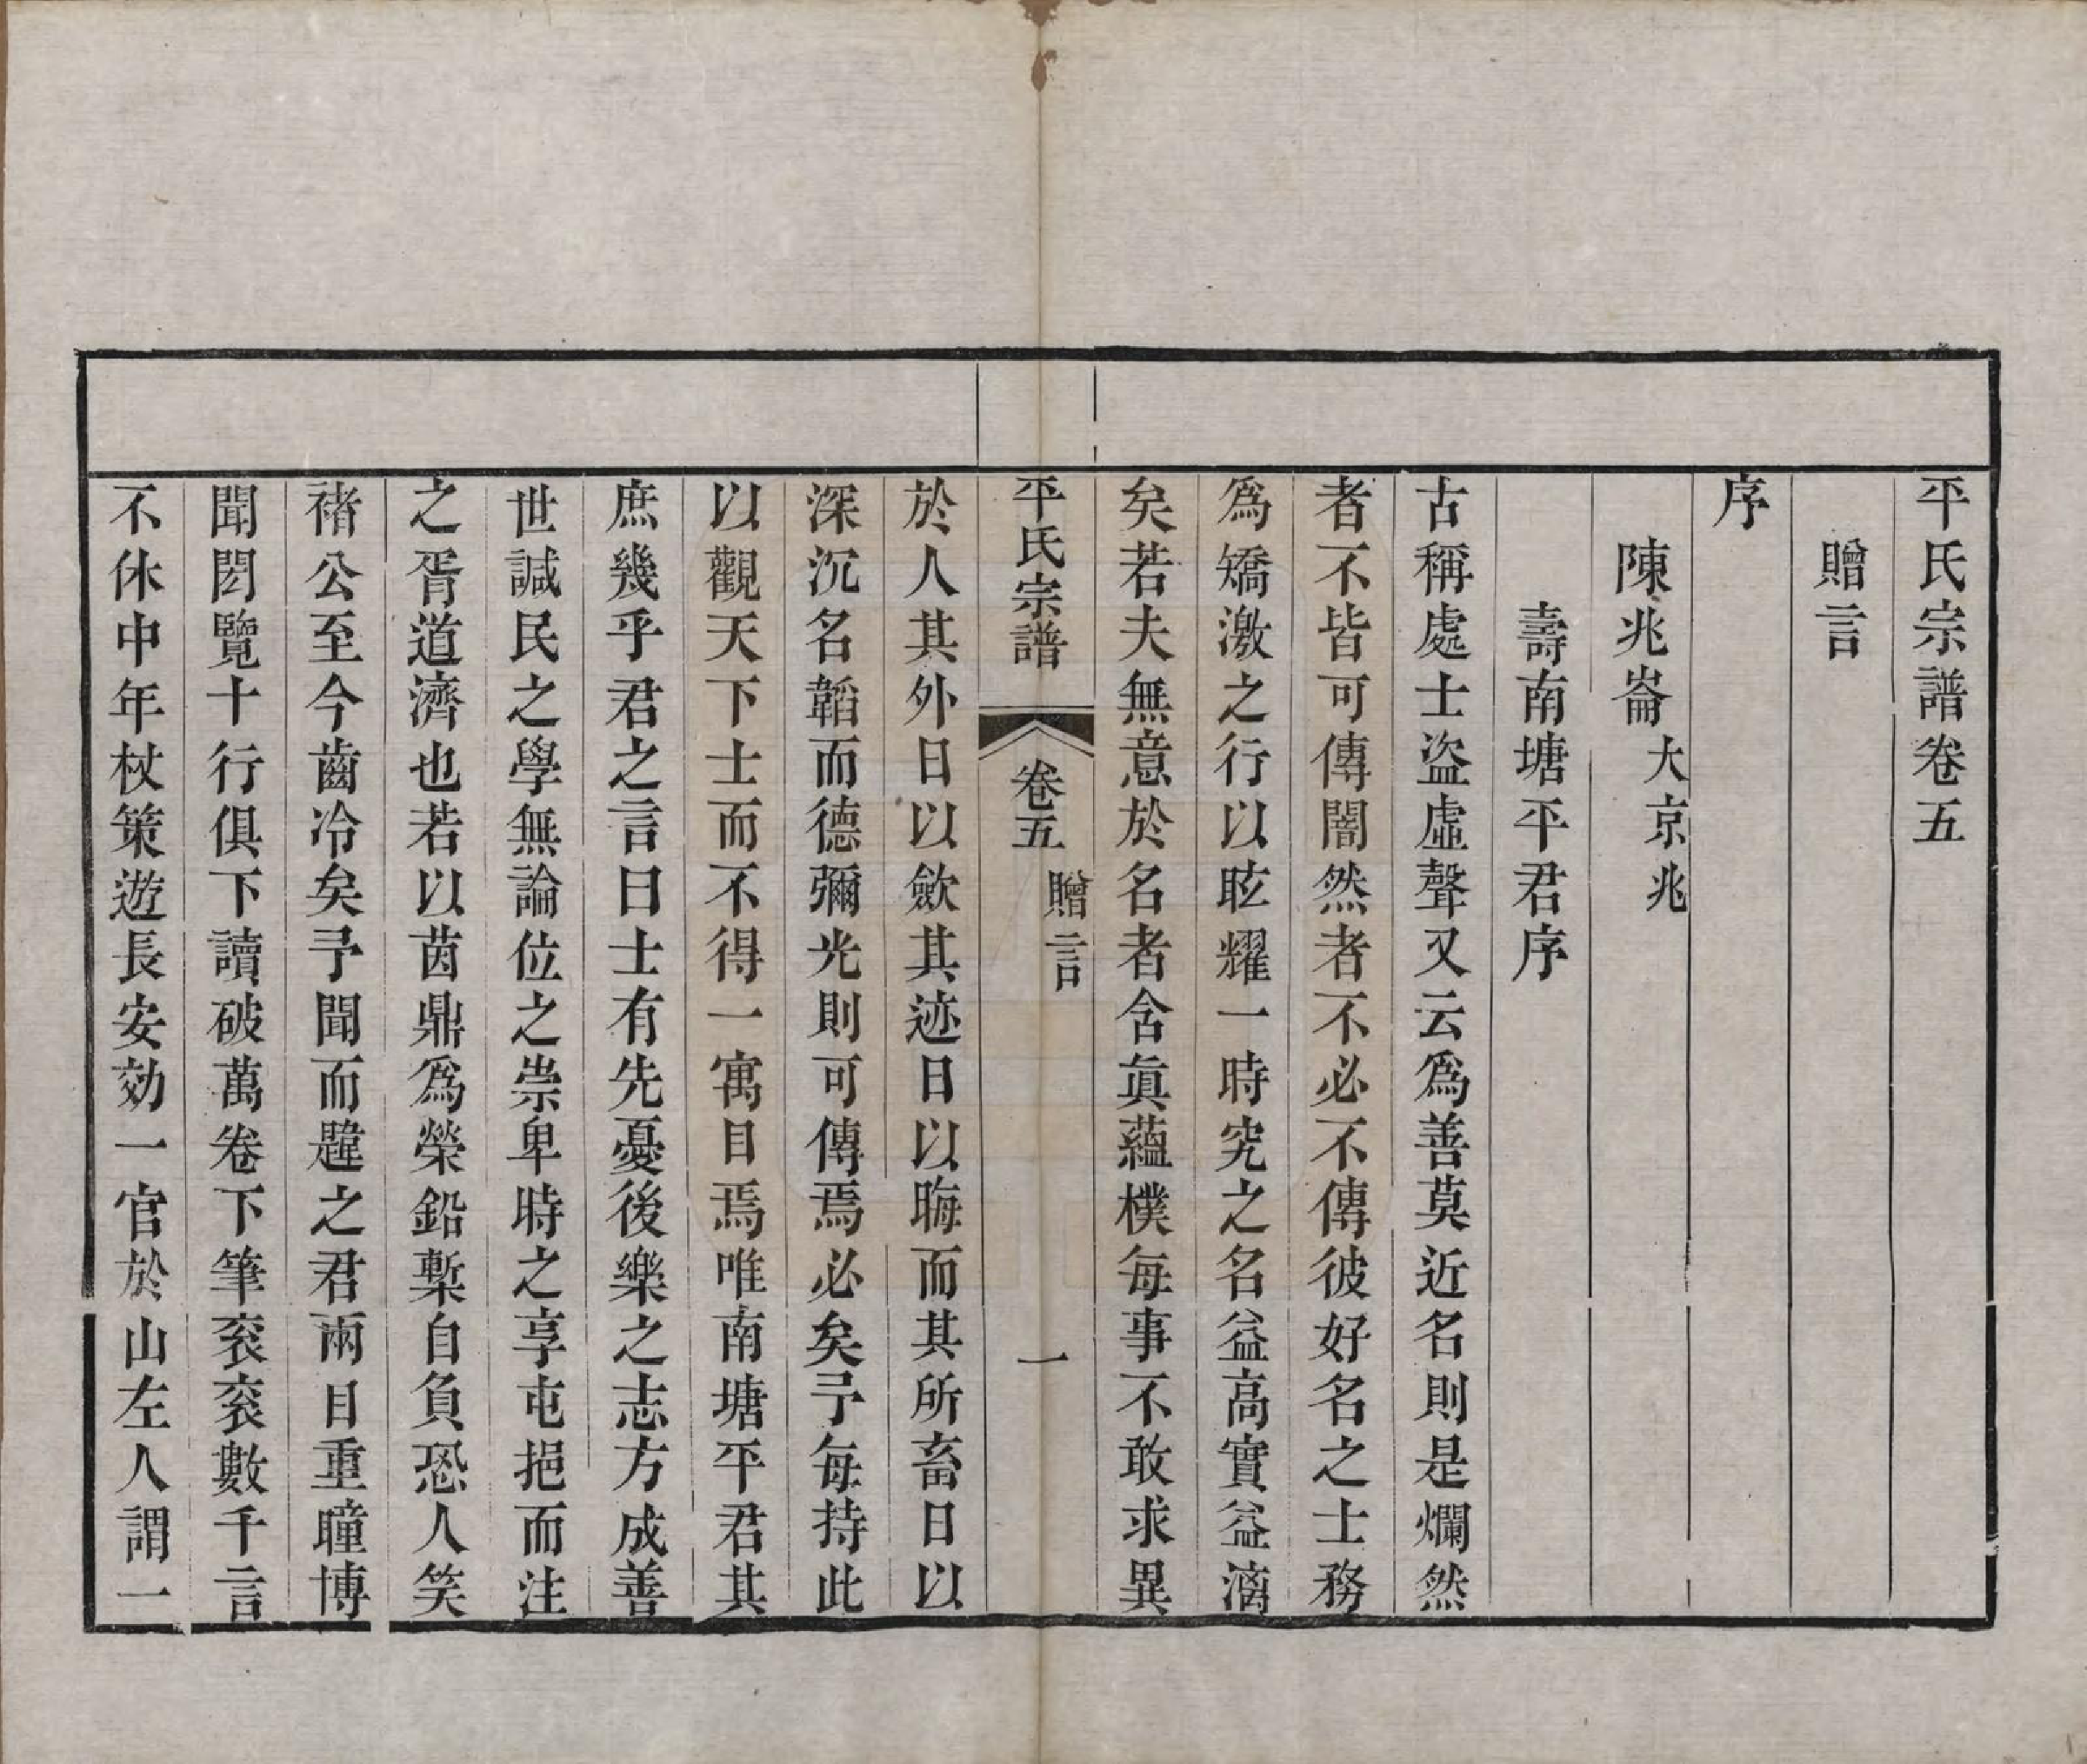 平氏宗譜卷五
贈言
序
陳兆崙大京兆
壽南塘平君序
古稱處士盜虛聲又云爲善莫近名則是爛然
者不皆可傳闇然者不必不傳彼好名之士務
爲矯激之行以眩耀一時究之名益高實益漓
矣若夫無意於名者含眞蘊樸每事不敢求異
平氏宗譜 卷五 贈言 一
於人其外日以歛其迹日以晦而其所畜日以
深沉名韜而德彌光則可傳焉必矣予每持此
以觀天下士而不得一寓目焉唯南塘平君其
庶幾乎君之言曰士有先憂後樂之志方成善
世諴民之學無論位之崇卑時之享屯挹而注
之胥道濟也若以茵鼎爲榮鉛槧自負恐人笑
褚公至今齒冷矣予聞而韙之君兩目重瞳博
聞閎覽十行俱下讀破萬卷下筆袞袞數千言
不休中年杖策遊長安効一官於山左人謂一